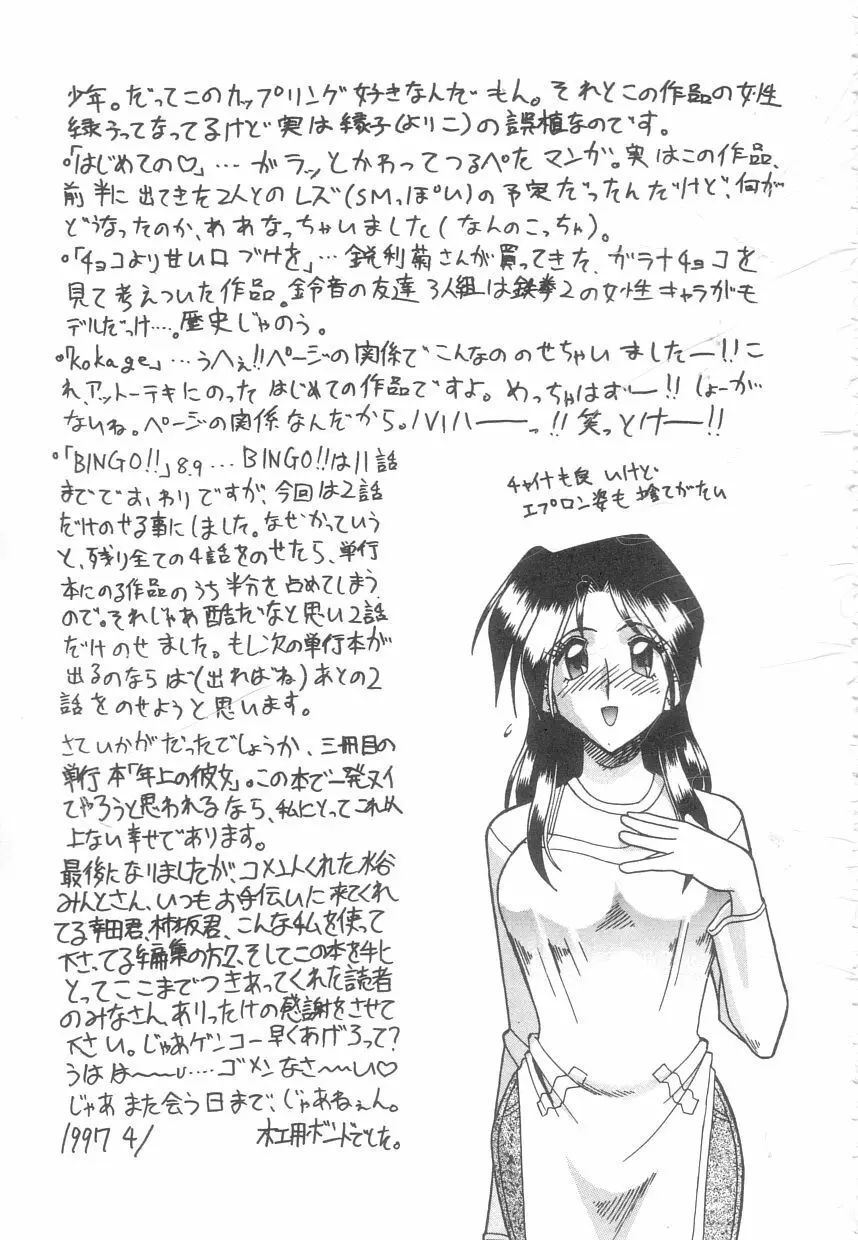 少年。だってこのカップリング好きなんだもん。それとこの作品の女性
縁うってなってるけど実は縁子(よりこ)の誤植なのです。
・「はじめての♡」…ガラッとかわってつるぺたマンガ。実はこの作品、
前半に出てきた2人とのレズ(SMっぽい)の予定だったんだけど、何が
どうなったのか、ああなっちゃいました(なんのこっちゃ)。
・「チョコより甘い口づけを」…鋭利菊さんが買ってきたガラナチョコを
見て考えついた作品。鈴音の友達3人組は鉄拳2の女性キャラがモ
デルだっけ…。歴史じゃのう。
・「kokage」…うへぇ!!ページの関係でこんなののせちゃいましたー!!こ
れ、アットーテキにのったはじめての作品ですよ。めっちゃはずー!!しょーが
ないね。ページの関係なんだから。ハハハーーっ!!笑っとけー!!
・「BINGO!!」8.9…BINGO!!は11話
まででおわりですが、今回は2話
だけのせる事にしました。なぜかっていう
と、残り全ての4話をのせたら、単行
本にのる作品のうち半分を占めてしまう
ので。それじゃあ酷だなと思い2話
だけのせました。もし次の単行本が
出るのならば(出ればね)あとの2
話をのせようと思います。
さていかがだったでしょうか、三冊目の
単行本「年上の彼女」。この本で一発ヌイ
てやろうと思われるなら、私にとってこれ以
上ない幸せであります。
最後になりましたが、コメ入くれた水谷
みんとさん、いつもお手伝いに来てくれ
てる幸田君、柿坂君、こんな私を使って
下さってる編集の方々、そしてこの本を手に
とってここまでつきあってくれた読者
のみなさん、ありったけの感謝をさせて
下さい。じゃあゲンコー早くあげろって?
うはは〜〜…ゴメンなさ〜〜い♡
じゃあまた会う日まで、じゃあねぇん。
1997 4/ 木工用ボンドでした。
チャイナも良いけど
エプロン姿も捨てがたい